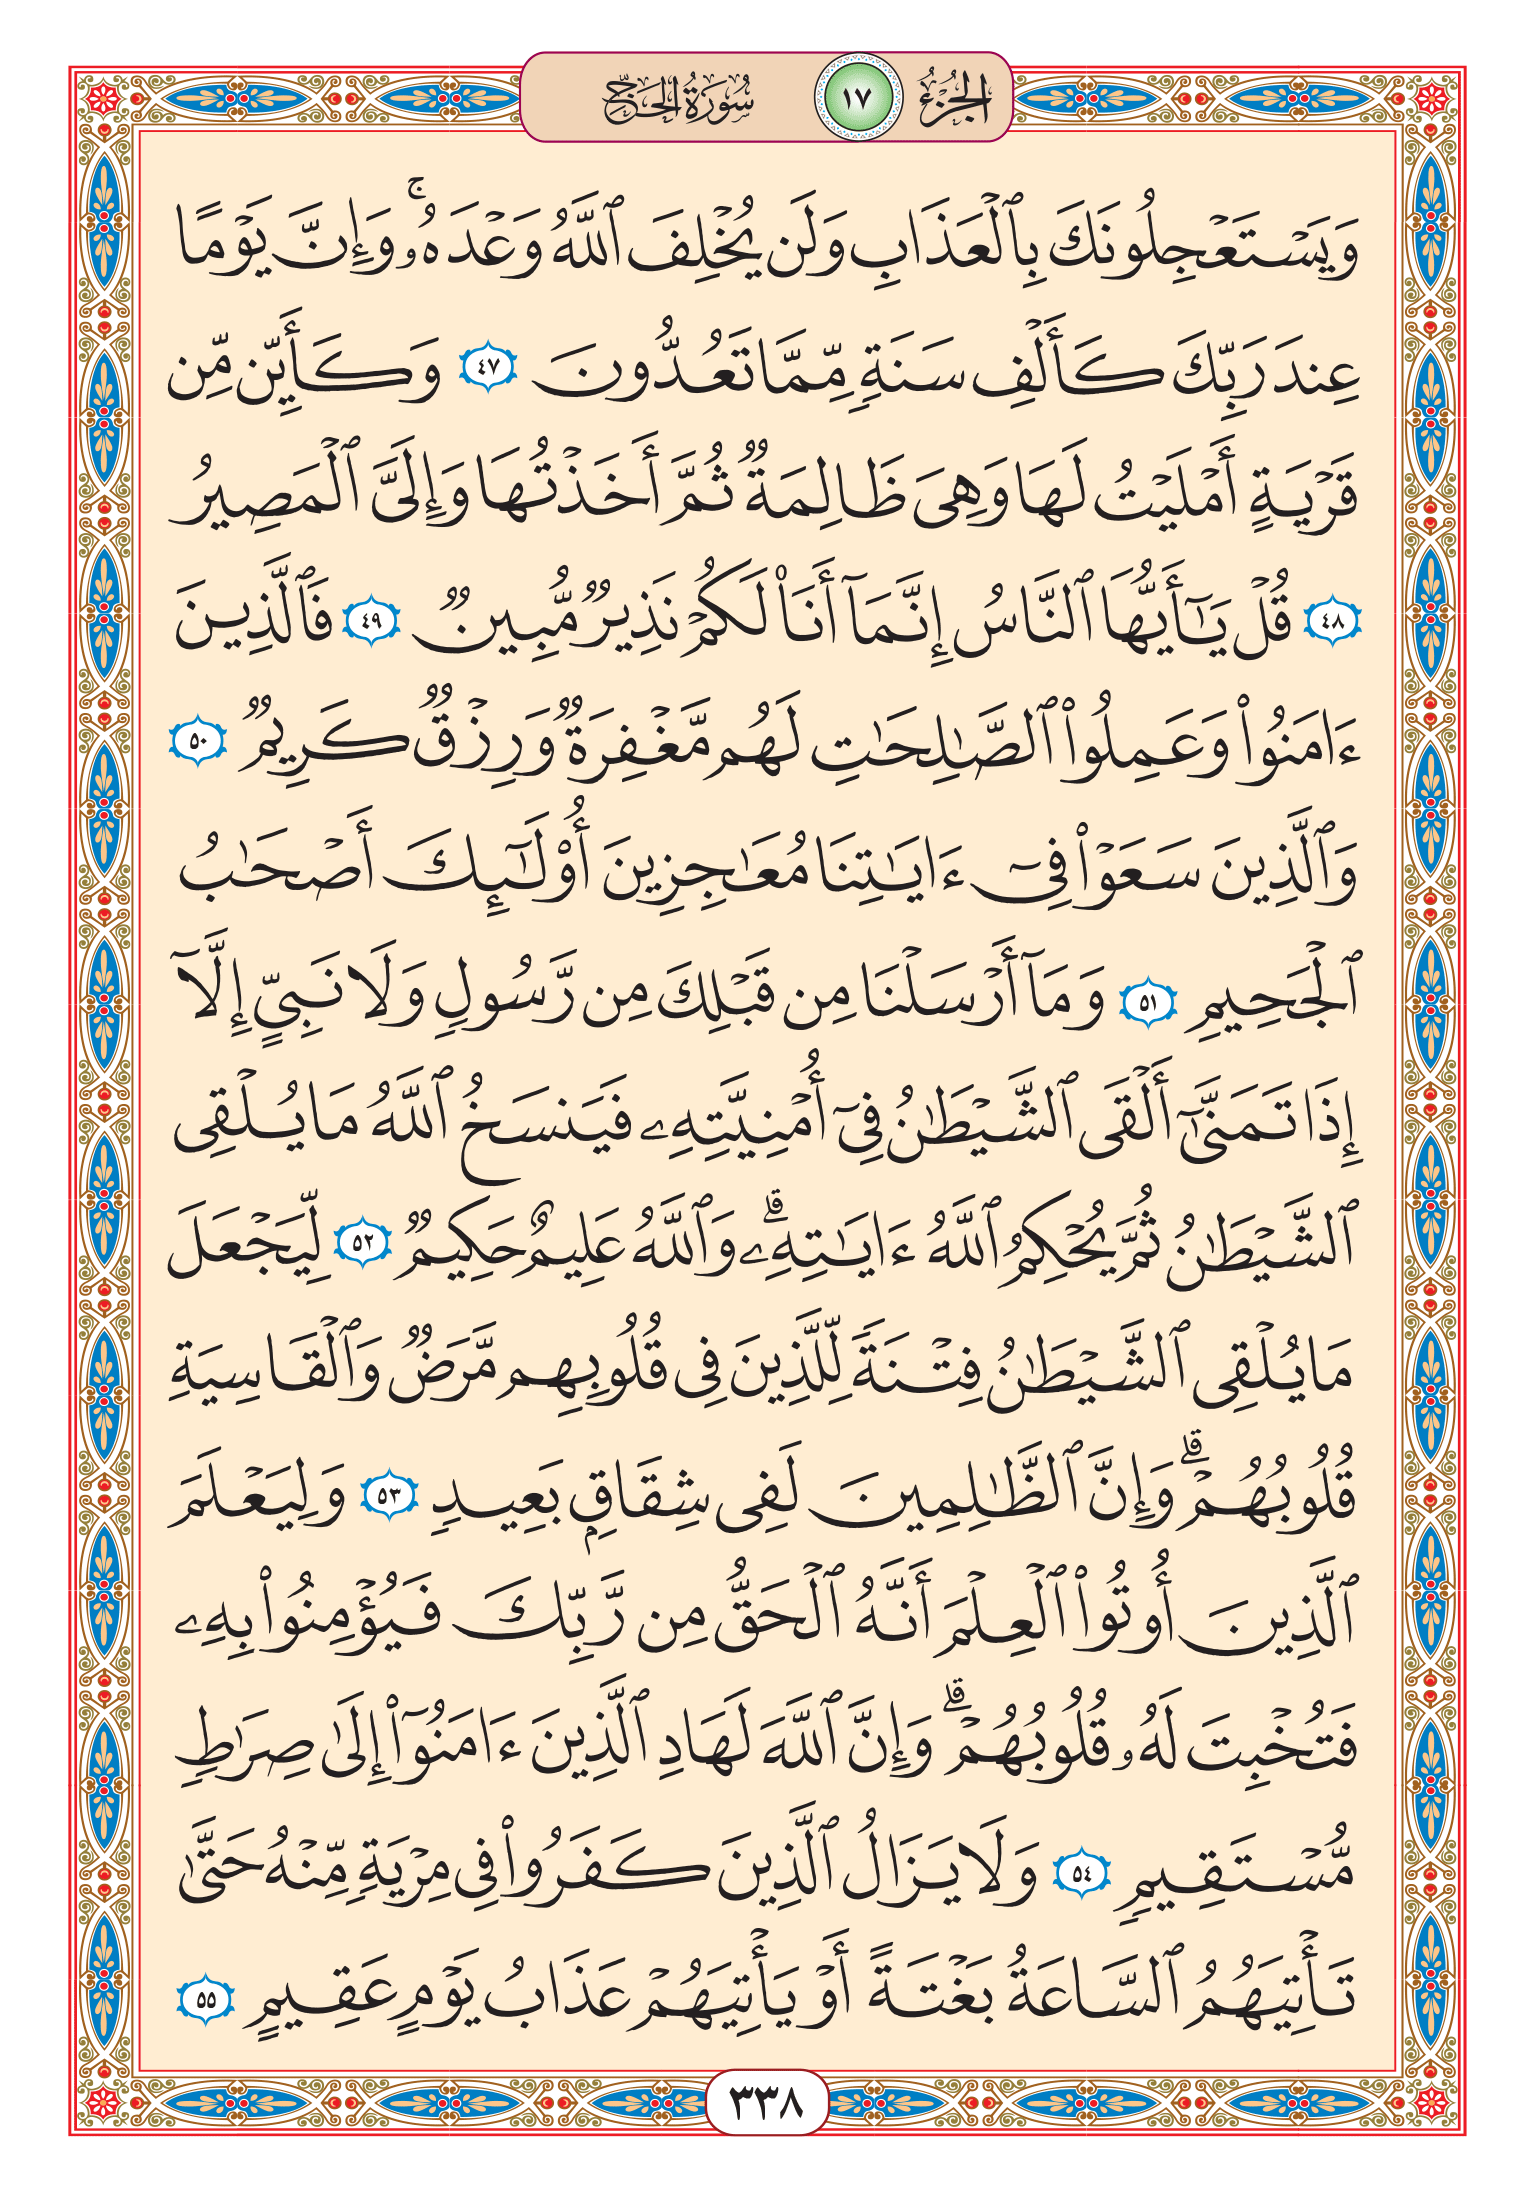 الجُزْءُ ١٧ سُورَةُ الحَجِّ
وَيَسْتَعْجِلُونَكَ بِٱلْعَذَابِ وَلَن يُخْلِفَ ٱللَّهُ وَعْدَهُۥۚ وَإِنَّ يَوْمًا
عِندَ رَبِّكَ كَأَلْفِ سَنَةٍ مِّمَّا تَعُدُّونَ ٤٧ وَكَأَيِّن مِّن
قَرْيَةٍ أَمْلَيْتُ لَهَا وَهِىَ ظَالِمَةٌ ثُمَّ أَخَذْتُهَا وَإِلَىَّ ٱلْمَصِيرُ
٤٨ قُلْ يَـٰٓأَيُّهَا ٱلنَّاسُ إِنَّمَآ أَنَا۠ لَكُمْ نَذِيرٌ مُّبِينٌ ٤٩ فَٱلَّذِينَ
ءَامَنُوا۟ وَعَمِلُوا۟ ٱلصَّـٰلِحَـٰتِ لَهُم مَّغْفِرَةٌ وَرِزْقٌ كَرِيمٌ ٥٠
وَٱلَّذِينَ سَعَوْا۟ فِىٓ ءَايَـٰتِنَا مُعَـٰجِزِينَ أُو۟لَـٰٓئِكَ أَصْحَـٰبُ
ٱلْجَحِيمِ ٥١ وَمَآ أَرْسَلْنَا مِن قَبْلِكَ مِن رَّسُولٍ وَلَا نَبِىٍّ إِلَّآ
إِذَا تَمَنَّىٰٓ أَلْقَى ٱلشَّيْطَـٰنُ فِىٓ أُمْنِيَّتِهِۦ فَيَنسَخُ ٱللَّهُ مَا يُلْقِى
ٱلشَّيْطَـٰنُ ثُمَّ يُحْكِمُ ٱللَّهُ ءَايَـٰتِهِۦۗ وَٱللَّهُ عَلِيمٌ حَكِيمٌ ٥٢ لِّيَجْعَلَ
مَا يُلْقِى ٱلشَّيْطَـٰنُ فِتْنَةً لِّلَّذِينَ فِى قُلُوبِهِم مَّرَضٌ وَٱلْقَاسِيَةِ
قُلُوبُهُمْۗ وَإِنَّ ٱلظَّـٰلِمِينَ لَفِى شِقَاقٍۭ بَعِيدٍ ٥٣ وَلِيَعْلَمَ
ٱلَّذِينَ أُوتُوا۟ ٱلْعِلْمَ أَنَّهُ ٱلْحَقُّ مِن رَّبِّكَ فَيُؤْمِنُوا۟ بِهِۦ
فَتُخْبِتَ لَهُۥ قُلُوبُهُمْۗ وَإِنَّ ٱللَّهَ لَهَادِ ٱلَّذِينَ ءَامَنُوٓا۟ إِلَىٰ صِرَٰطٍ
مُّسْتَقِيمٍ ٥٤ وَلَا يَزَالُ ٱلَّذِينَ كَفَرُوا۟ فِى مِرْيَةٍ مِّنْهُ حَتَّىٰ
تَأْتِيَهُمُ ٱلسَّاعَةُ بَغْتَةً أَوْ يَأْتِيَهُمْ عَذَابُ يَوْمٍ عَقِيمٍ ٥٥
٣٣٨